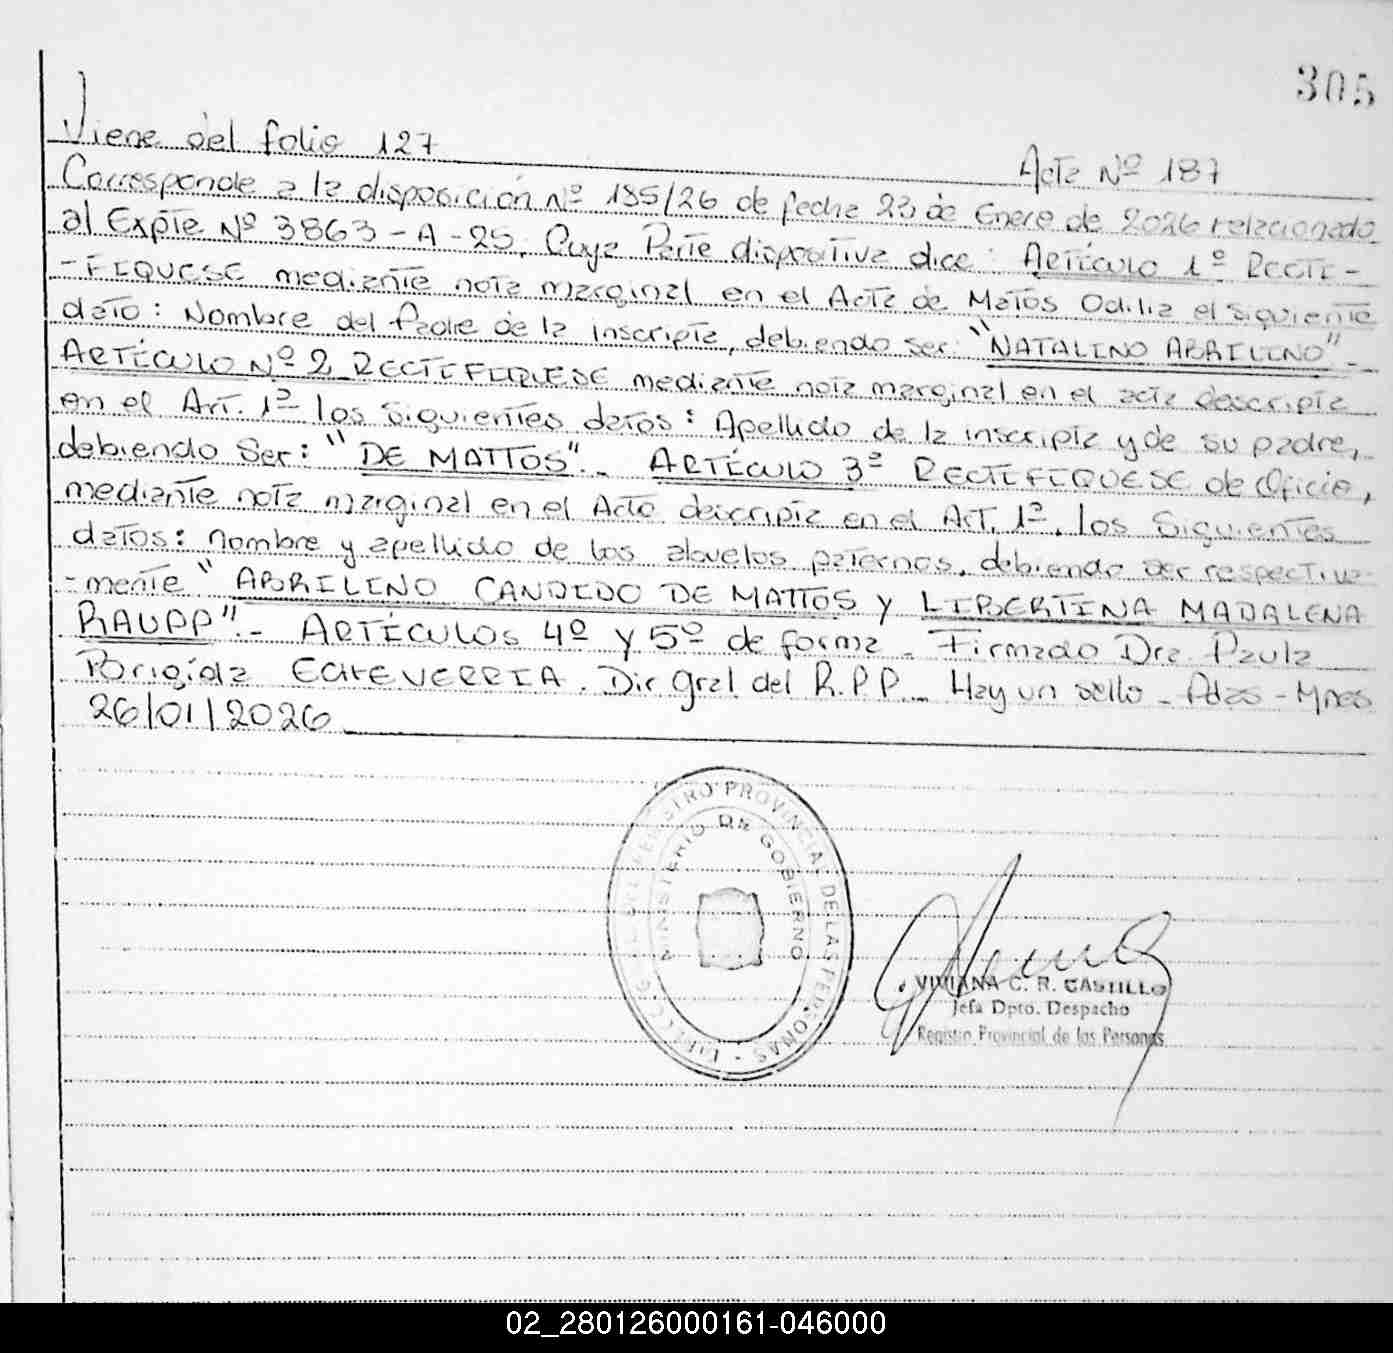 305
Viene del folio 127
Acta Nº 187
Corresponde a la disposición Nº 185/26 de fecha 23 de Enero de 2026 relacionado
al Expte Nº 3863-A-25, Cuya Parte dispositiva dice: Artículo 1º RECTI-
-FIQUESE mediante nota marginal en el Acta de Matos Odilia el siguiente
dato: Nombre del Padre de la inscripta, debiendo ser: "NATALINO ABRILINO"-
ARTÍCULO Nº 2 RECTIFIQUESE mediante nota marginal en el acta descripta
en el Art. 1º los siguientes datos: Apellido de la inscripta y de su padre,
debiendo Ser: "DE MATTOS".- ARTÍCULO 3º RECTIFIQUESE de Oficio,
mediante nota marginal en el Acta descripta en el Art. 1º, los Siguientes
datos: nombre y apellido de los abuelos paternos, debiendo ser respectiva-
-mente "ABRILINO CANDIDO DE MATTOS y LIBERTINA MADALENA
RAUPP".- ARTÍCULOS 4º y 5º de forma. Firmado Dra. Paula
Brigida ECHEVERRIA. Dir Gral del R.P.P.- Hay un sello - Pdas - Mnes
26/01/2026
REGISTRO PROVINCIAL DE LAS PERSONAS
MINISTERIO DE GOBIERNO
VIVIANA C. R. CASTILLO
Jefa Dpto. Despacho
Registro Provincial de las Personas
02_280126000161-046000